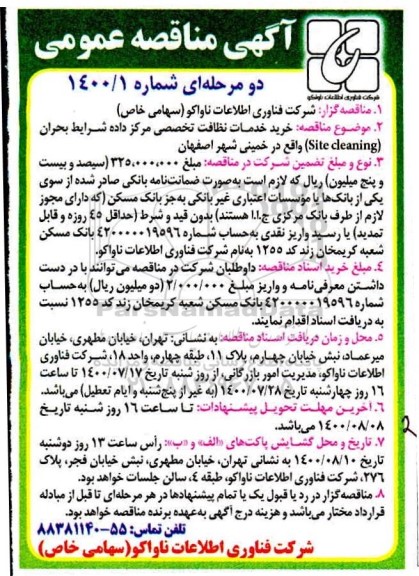 آگهی مناقصه عمومی
شرکت فناوری اطلاعات ناواکو
دو مرحله‌ای شماره ۱۴۰۰/۱
۱. مناقصه‌گزار: شرکت فناوری اطلاعات ناواکو (سهامی خاص)
۲. موضوع مناقصه: خرید خدمات نظافت تخصصی مرکز داده شرایط بحران
(Site cleaning) واقع در خمینی شهر اصفهان
۳. نوع و مبلغ تضمین شرکت در مناقصه: مبلغ ۳۲۵,۰۰۰,۰۰۰ (سیصد و بیست
و پنج میلیون) ریال که لازم است به صورت ضمانت‌نامه بانکی صادر شده از سوی
یکی از بانک‌ها یا مؤسسات اعتباری غیر بانکی به جز بانک مسکن (که دارای مجوز
لازم از طرف بانک مرکزی ج.ا.ا هستند) بدون قید و شرط (حداقل ۴۵ روزه و قابل
تمدید) یا رسید واریز نقدی به حساب شماره ۴۲۰۰۰۰۰۱۹۵۹۶ بانک مسکن
شعبه کریمخان زند کد ۱۲۵۵ به‌نام شرکت فناوری اطلاعات ناواکو.
۴. مبلغ خرید اسناد مناقصه: داوطلبان شرکت در مناقصه می‌توانند با در دست
داشتن معرفی‌نامه و واریز مبلغ ۲/۰۰۰/۰۰۰ (دو میلیون ریال) به حساب
شماره ۴۲۰۰۰۰۰۱۹۵۹۶ بانک مسکن شعبه کریمخان زند کد ۱۲۵۵ نسبت
به دریافت اسناد اقدام نمایند.
۵. محل و زمان دریافت اسناد مناقصه: به نشانی: تهران، خیابان مطهری، خیابان
میرعماد، نبش خیابان چهارم، پلاک ۱۱، طبقه چهارم، واحد ۱۸، شرکت فناوری
اطلاعات ناواکو، مدیریت امور بازرگانی، از روز شنبه تاریخ ۱۴۰۰/۰۷/۱۷ تا ساعت
۱۶ روز چهارشنبه تاریخ ۱۴۰۰/۰۷/۲۸ (به غیر از پنج‌شنبه و ایام تعطیل) می‌باشد.
۶. آخرین مهلت تحویل پیشنهادات: تا ساعت ۱۶ روز شنبه تاریخ
۱۴۰۰/۰۸/۰۸ می‌باشد.
۷. تاریخ و محل گشایش پاکت‌های «الف» و «ب»: رأس ساعت ۱۳ روز دوشنبه
تاریخ ۱۴۰۰/۰۸/۱۰ به نشانی تهران، خیابان مطهری، نبش خیابان فجر، پلاک
۲۷۶، شرکت فناوری اطلاعات ناواکو، طبقه ۴، سالن جلسات خواهد بود.
۸. مناقصه‌گزار در رد یا قبول یک یا تمام پیشنهادها در هر مرحله‌ای تا قبل از مبادله
قرارداد مختار می‌باشد و هزینه درج آگهی به‌عهده برنده مناقصه خواهد بود.
تلفن تماس: ۵۵-۸۸۳۸۱۱۴۰
شرکت فناوری اطلاعات ناواکو (سهامی خاص)